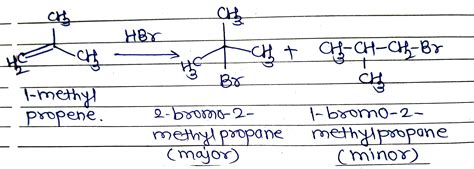 CH3 CH3
HBr
H2C CH3 → H3C CH3 + CH3-CH-CH2-Br
Br CH3
1-methyl propene. 2-bromo-2-methylpropane (major) 1-bromo-2-methylpropane (minor)